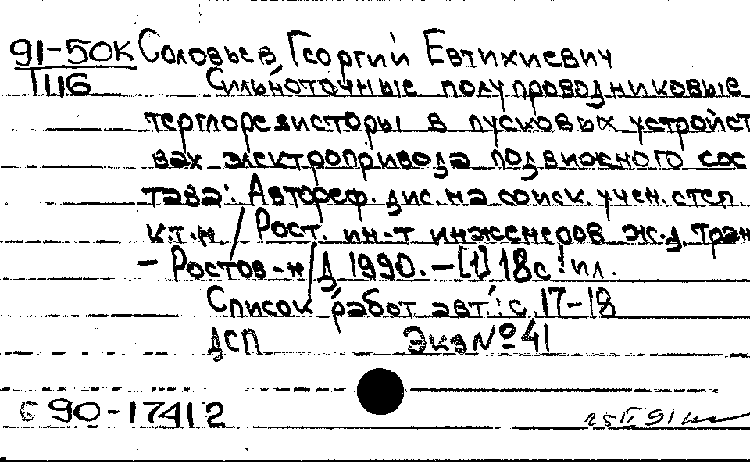 91-50К Соловьев, Георгий Евтихиевич
1116 Сильноточные полупроводниковые
терморезисторы в пусковых устройст
вах электропривода подвижного сос
тава: Автореф. дис. на соиск. учен. степ.
к.т.н / Рост. ин-т инженеров ж.д. тран
- Ростов-н/Д 1990. - [1] 18с: ил.
Список работ авт.: с. 17-18
ДСП Экз № 41
90-17412
91